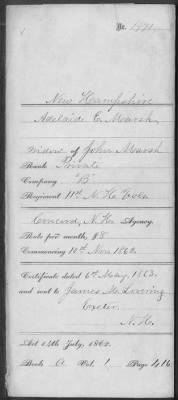 No. 1891
New Hampshire
Adelaide E. Marsh
widow of John Marsh
Rank Private
Company "B"
Regiment 11th N. H. Vols
Concord, N. H. Agency.
Rate per month, $8
Commencing 10th Nov. 1862.
Certificate dated 6th May, 1863.
and sent to James M. Lovering
Exeter
N. H.
Act 14th July, 1862.
Book A Vol. 1 Page 416